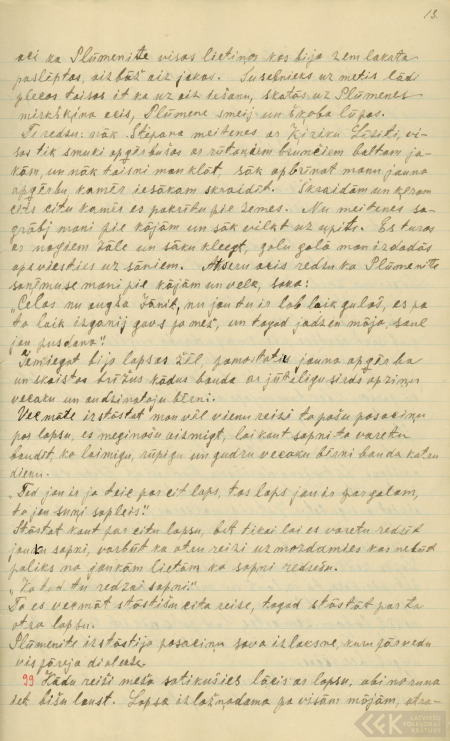 13.
aci ka Plūmenitte visas lietiņas kas bija zem lakata
paslēptas, aiz bāž aiz jakas. Susetnieks uz metis lādi
plecos taisos it ka uz aiz iešanu, skatās uz Plūmenes
mirkšķina acis, Plūmene smeij un škoba lūpas.
Te redzu: nāk Stepana meitenes ar Ķiziku Lōsiti, vi-
sas tik smuki apģērbušas ar rūtaņiem brunčiem baltam ja-
kām, un nāk taisni man klāt, sāk apbrīnāt manu jauno
apģērbu kamēr iesākam skraidīt. Skraidām un ķeram
cits citu kamēr es pakrītu pie zemes. Nu meitenes sa-
grābj mani pie kājām un sāk vilkt uz upīti. Es turos
ar nagiem zāle un sāku kleegt, galu galā man izdodās
apsviesties uz sāniem. Atveru acis redzu ka Plūmenitte
saņēmuse mani pie kājām un velk, soka:
„Celos nu augša Jānīt, nu jau tu ir lob laik gulāi, es pa
to laik izganij gavs pa mež, un tagad jādzen māja, saul
jau pusdana".
Tamiegat bija lapsas žēl, pamostatu jauno apģērba
un skaistos brīžus kādus bauda ar jūtēligu sirds apziņu
vecaku un audzinataju bērni.
Vecmāte izstāstat man vēl vienu reizi to pašu pasaciņu
par lapsu, es meginašu aizmigt, lai kaut sapni to varetu
baudīt, ko laimigu, rūpigu un gudru vecaku bērni bauda katru
dienu.
„Tad jau ir ja teic par cit laps, tas laps jau ir par galam,
to jau suņi saplēis".
Stāstat kaut par citu lapsu, bet tikai lai es varetu redzēt
jauku sapni, varbūt ka otru reizi uz mozdamies kas nebūd
paliks no jaukām lietām ko sapni redzešu.
„Ko tad tu redzai sapni?"
To es vecmāt stāstišu cita reize, tagad stāstāt par to
otro lapsu.
Plūmenite izstāstija pasaciņu sava izloksne, kuru pārvedu
vispārēja dialekte.
99 Kādu reizi meža satikušies lācis ar lapsu, abi norunā
iet bišu laust. Lapsa izložņadama pa visām mājām, atra-
LATVIEŠU FOLKLORAS KRĀTUVE